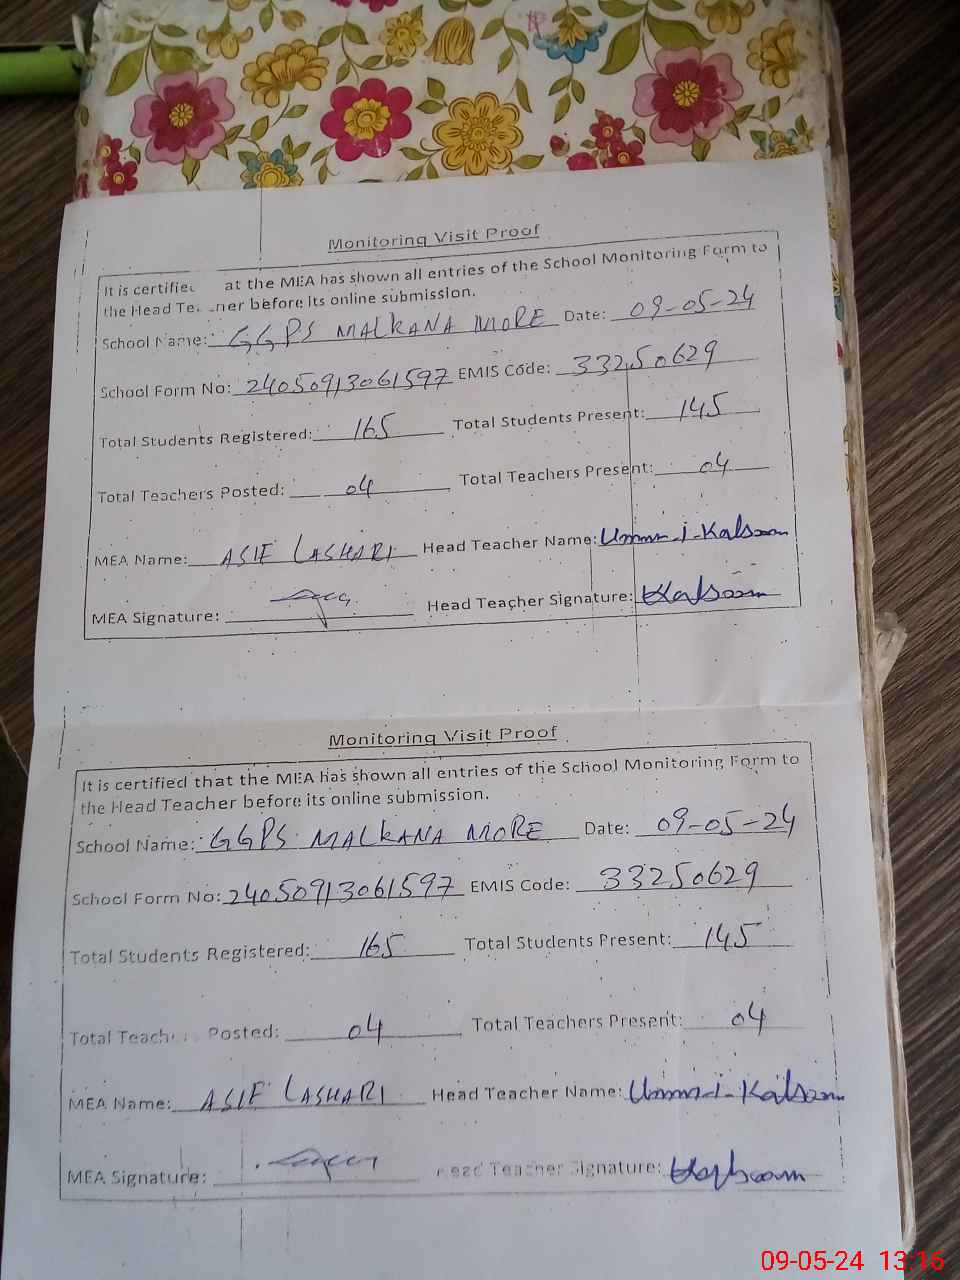 Monitoring Visit Proof
It is certified at the MEA has shown all entries of the School Monitoring Form to
the Head Te ner before its online submission.
School Name: GGPS MALKANA MORE Date: 09-05-24
School Form No: 24050913061597 EMIS Code: 33250629
Total Students Registered: 165 Total Students Present: 145
Total Teachers Posted: 04 Total Teachers Present: 04
MEA Name: ASIF LASHARI Head Teacher Name: Umm-i-Kalsoom
MEA Signature: Head Teacher Signature: Kalsoom
Monitoring Visit Proof
It is certified that the MEA has shown all entries of the School Monitoring Form to
the Head Teacher before its online submission.
School Name: GGPS MALKANA MORE Date: 09-05-24
School Form No: 24050913061597 EMIS Code: 33250629
Total Students Registered: 165 Total Students Present: 145
Total Teach Posted: 04 Total Teachers Present: 04
MEA Name: ASIF LASHARI Head Teacher Name: Umm-i-Kalsoom
MEA Signature: Head Teacher Signature: Kalsoom
09-05-24 13:16